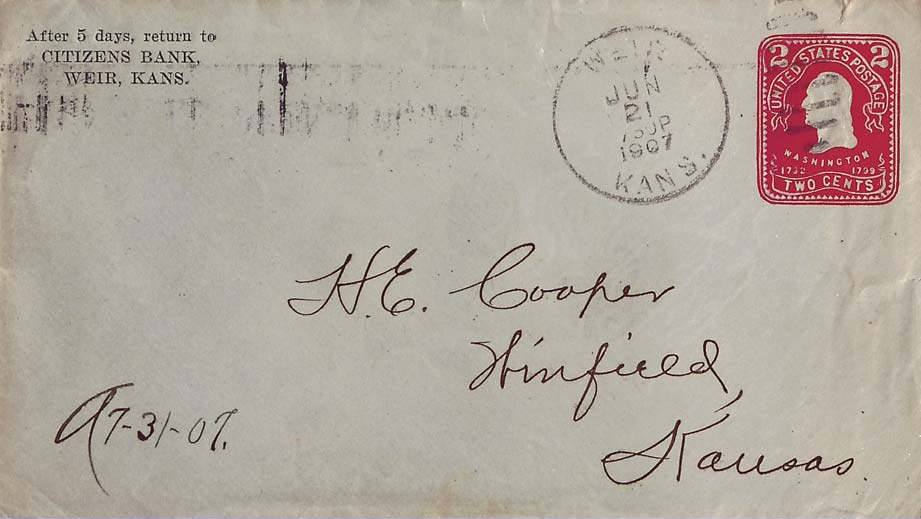 After 5 days, return to
CITIZENS BANK,
WEIR, KANS.
WEIR
JUN
21
1907
KANS.
2 2
UNITED STATES POSTAGE
WASHINGTON
1732 1799
TWO CENTS
H.E. Cooper
Winfield,
Kansas.
A 7-31-07.